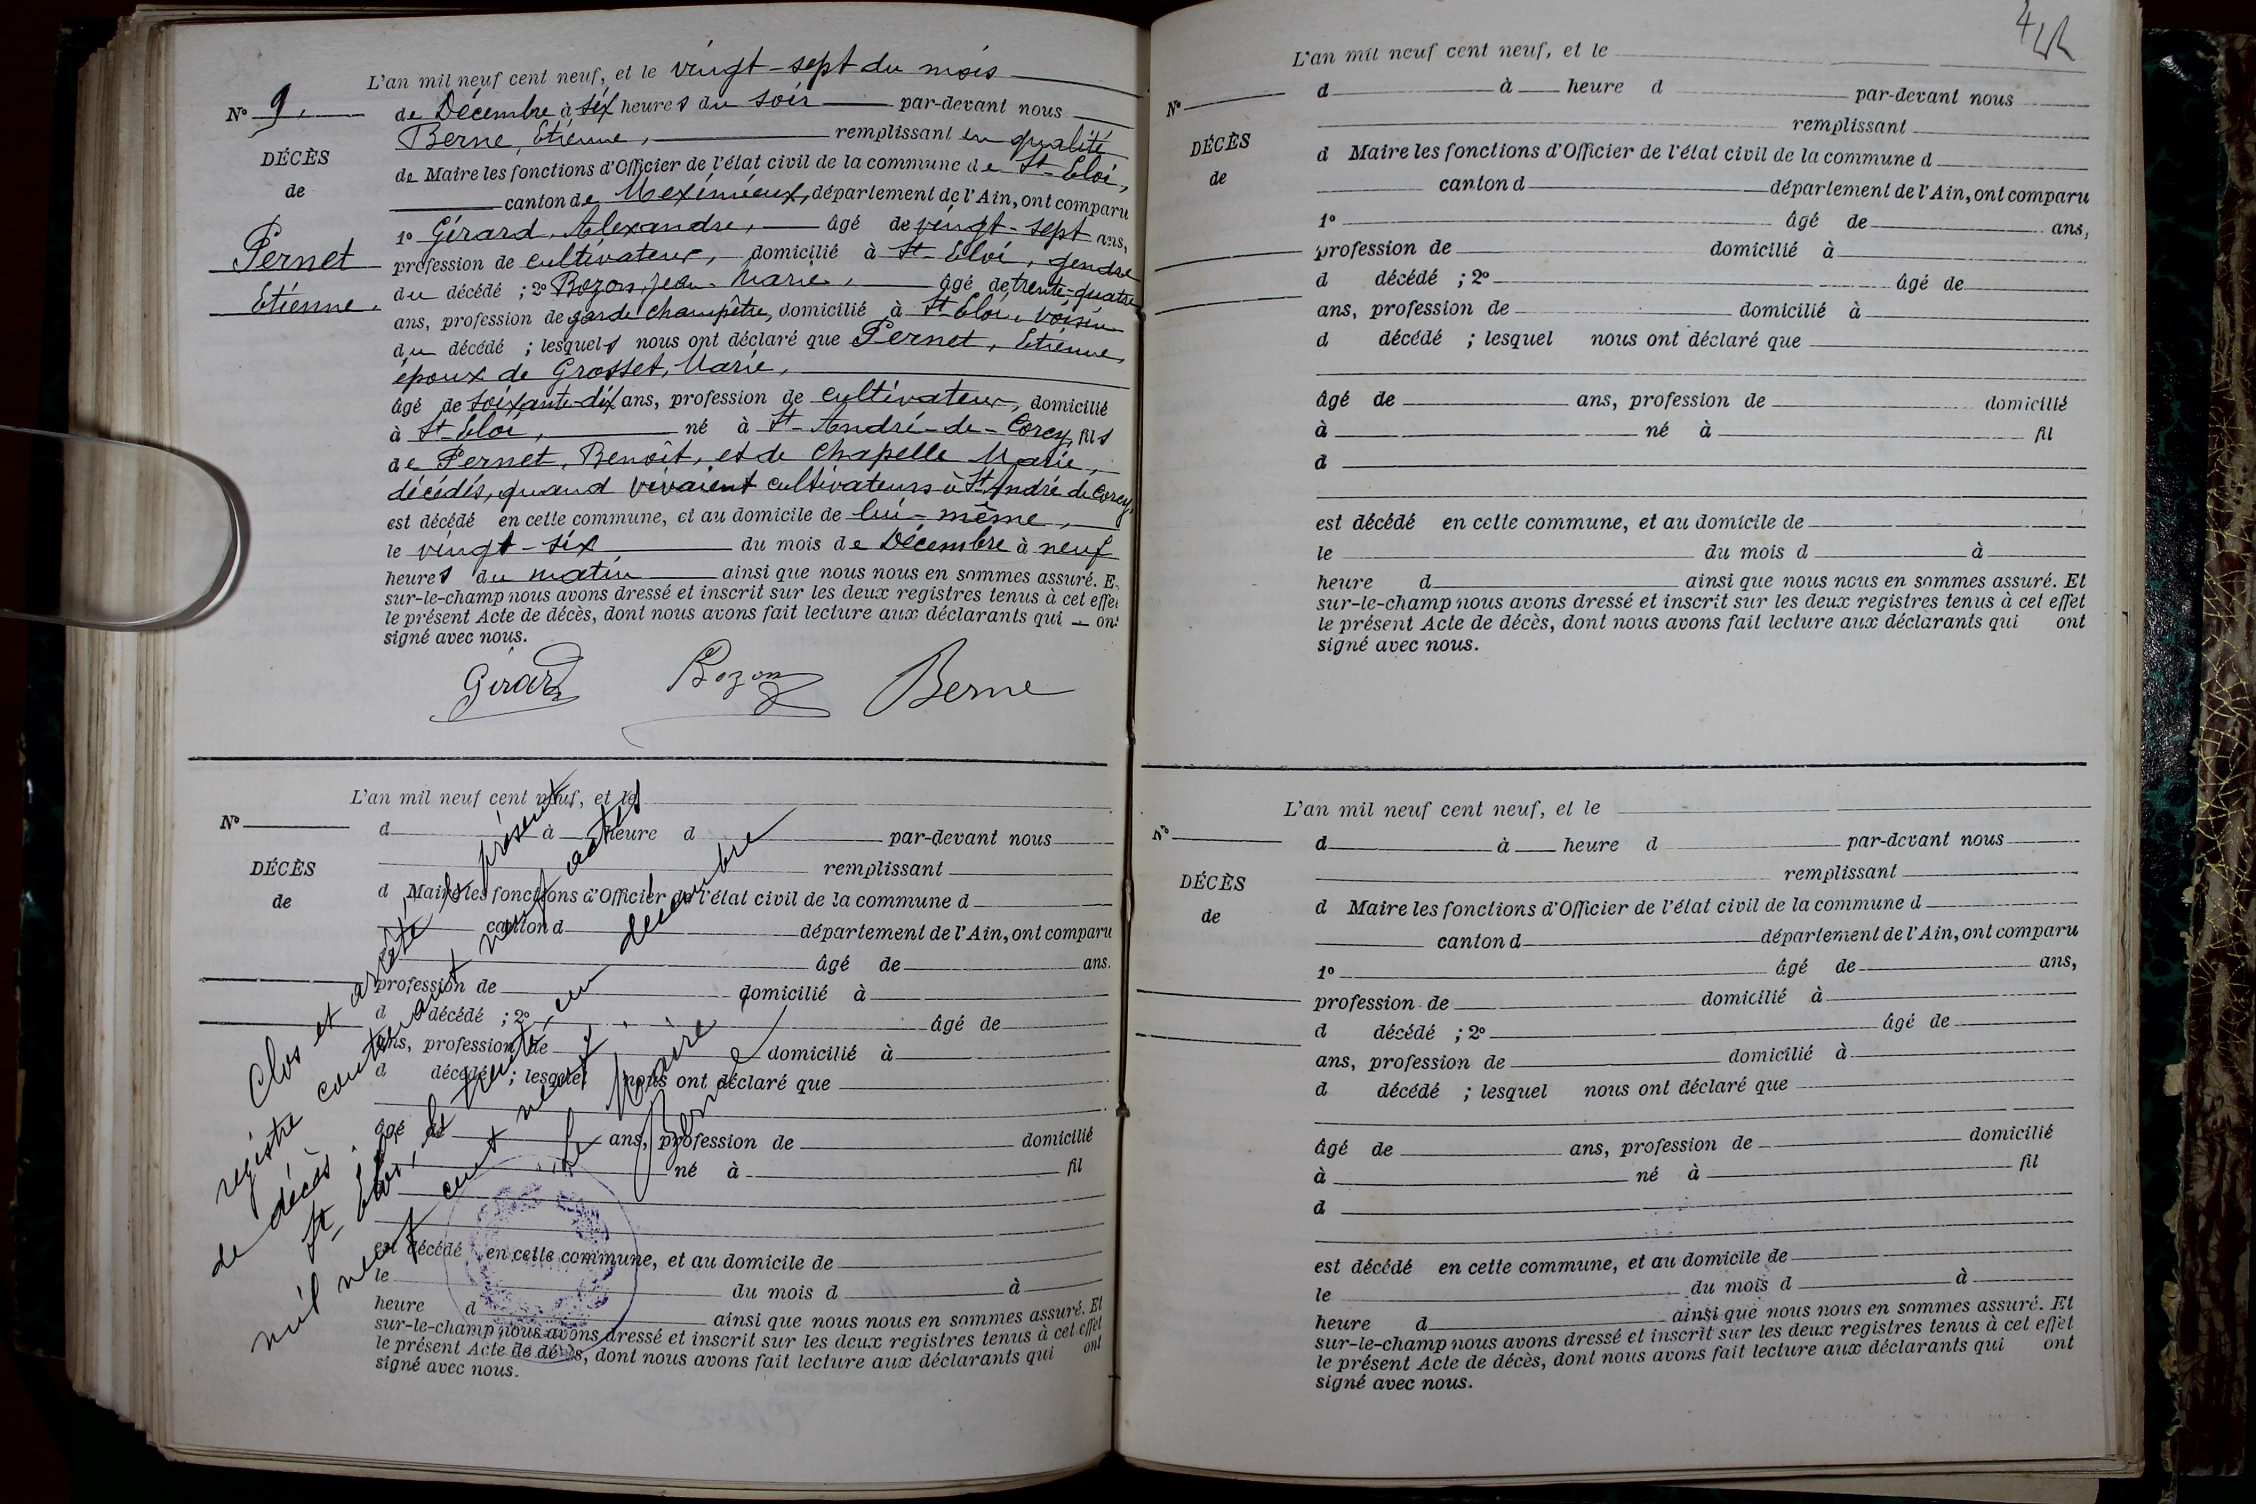 L'an mil neuf cent neuf, et le vingt-sept du mois
de Décembre à six heures du soir par-devant nous
Berne, Etienne, remplissant en qualité
de Maire les fonctions d'Officier de l'état civil de la commune de St-Eloi,
canton de Meximieux, département de l'Ain, ont comparu
1° Gérard, Alexandre, âgé de vingt-sept ans,
profession de cultivateur, domicilié à St-Eloi, gendre
du décédé ; 2° Bozon, Jean-Marie, âgé de trente-quatre
ans, profession de garde champêtre, domicilié à St Eloi, voisin
du décédé ; lesquels nous ont déclaré que Pernet, Etienne,
époux de Grosset, Marie,
âgé de soixante-dix ans, profession de cultivateur, domicilié
à St-Eloi, né à St-André-de-Corcy, fils
de Pernet, Benoît, et de Chapelle Marie,
décédés, quand vivaient cultivateurs à St André de Corcy,
est décédé en cette commune, et au domicile de lui-même,
le vingt-six du mois de Décembre à neuf
heures du matin ainsi que nous nous en sommes assuré. E
sur-le-champ nous avons dressé et inscrit sur les deux registres tenus à cet effet
le présent Acte de décès, dont nous avons fait lecture aux déclarants qui ont
signé avec nous.
N° 9.
DÉCÈS
de
Pernet
Etienne.
Girard
Bozon
Berne
L'an mil neuf cent neuf, et le
N°
d à heure d par-devant nous
remplissant
DÉCÈS
de
d Maire les fonctions d'Officier de l'état civil de la commune d
canton d département de l'Ain, ont comparu
âgé de ans.
profession de domicilié à
d décédé ; 2° âgé de
ans, profession de domicilié à
d décédé ; lesquel nous ont déclaré que
âgé de ans, profession de domicilié
né à fil
est décédé en cette commune, et au domicile de
le du mois d à
heure d ainsi que nous nous en sommes assuré. Et
sur-le-champ nous avons dressé et inscrit sur les deux registres tenus à cet effet
le présent Acte de décès, dont nous avons fait lecture aux déclarants qui ont
signé avec nous.
Clos et arrêté le présent
registre contenant neuf actes
de décès.
St-Eloi, le trente-un décembre
mil neuf cent neuf.
Le Maire
Berne
L'an mil neuf cent neuf, et le
N°
d à heure d par-devant nous
remplissant
DÉCÈS
de
d Maire les fonctions d'Officier de l'état civil de la commune d
canton d département de l'Ain, ont comparu
1° âgé de ans,
profession de domicilié à
d décédé ; 2° âgé de
ans, profession de domicilié à
d décédé ; lesquel nous ont déclaré que
âgé de ans, profession de domicilié
à né à fil
d
est décédé en cette commune, et au domicile de
le du mois d à
heure d ainsi que nous nous en sommes assuré. Et
sur-le-champ nous avons dressé et inscrit sur les deux registres tenus à cet effet
le présent Acte de décès, dont nous avons fait lecture aux déclarants qui ont
signé avec nous.
L'an mil neuf cent neuf, et le
N°
d à heure d par-devant nous
remplissant
DÉCÈS
de
d Maire les fonctions d'Officier de l'état civil de la commune d
canton d département de l'Ain, ont comparu
1° âgé de ans,
profession de domicilié à
d décédé ; 2° âgé de
ans, profession de domicilié à
d décédé ; lesquel nous ont déclaré que
âgé de ans, profession de domicilié
à né à fil
d
est décédé en cette commune, et au domicile de
le du mois d à
heure d ainsi que nous nous en sommes assuré. Et
sur-le-champ nous avons dressé et inscrit sur les deux registres tenus à cet effet
le présent Acte de décès, dont nous avons fait lecture aux déclarants qui ont
signé avec nous.